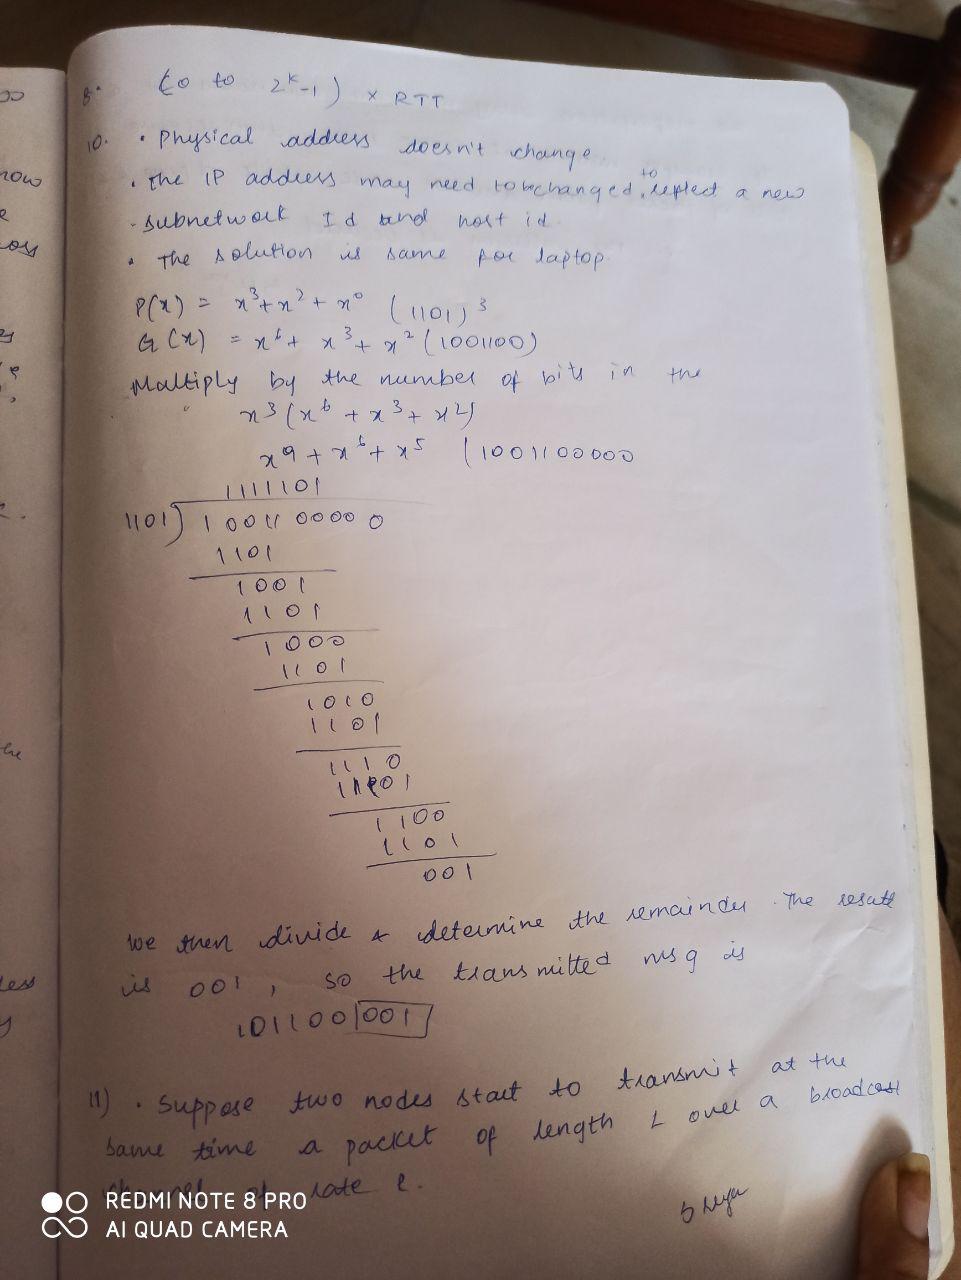 8. (0 to 2^k-1) x RTT
10. • Physical address doesn't change
• The IP address may need to be changed to reflect a new
- subnetwork Id and host id
• The solution is same for laptop
P(x) = x³+x²+x⁰ (1101) 3
G(x) = x⁶+ x³+ x² (1001100)
Multiply by the number of bits in the
x³(x⁶ + x³+ x²)
x⁹ + x⁶ + x⁵ (1001100000
1111101
1101) 10011 0000 0
1101
1001
1101
1000
1101
1010
1101
1110
1101
1100
1101
001
We then divide & determine the remainder. The result
is 001, so the transmitted msg is
1011001001
11) • Suppose two nodes start to transmit at the
same time a packet of length L over a broadcast
channel of rate
REDMI NOTE 8 PRO
AI QUAD CAMERA
now
oss
the
less
y